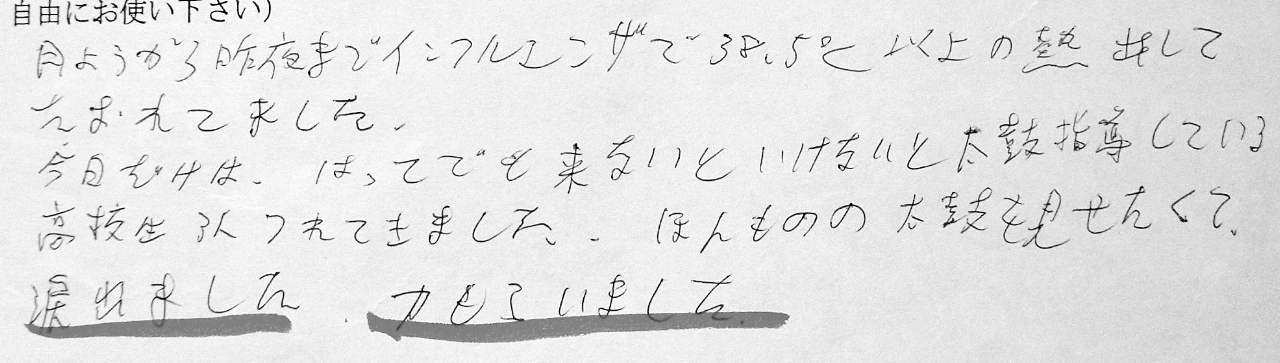 自由にお使い下さい）
月ようから昨夜までインフルエンザで38.5℃以上の熱出して
たおれてました.
今日だけは、はってでも来ないといけないと太鼓指導している
高校生3人つれてきました.. ほんものの太鼓を見せたくて、
涙出ました. 力もらいました.